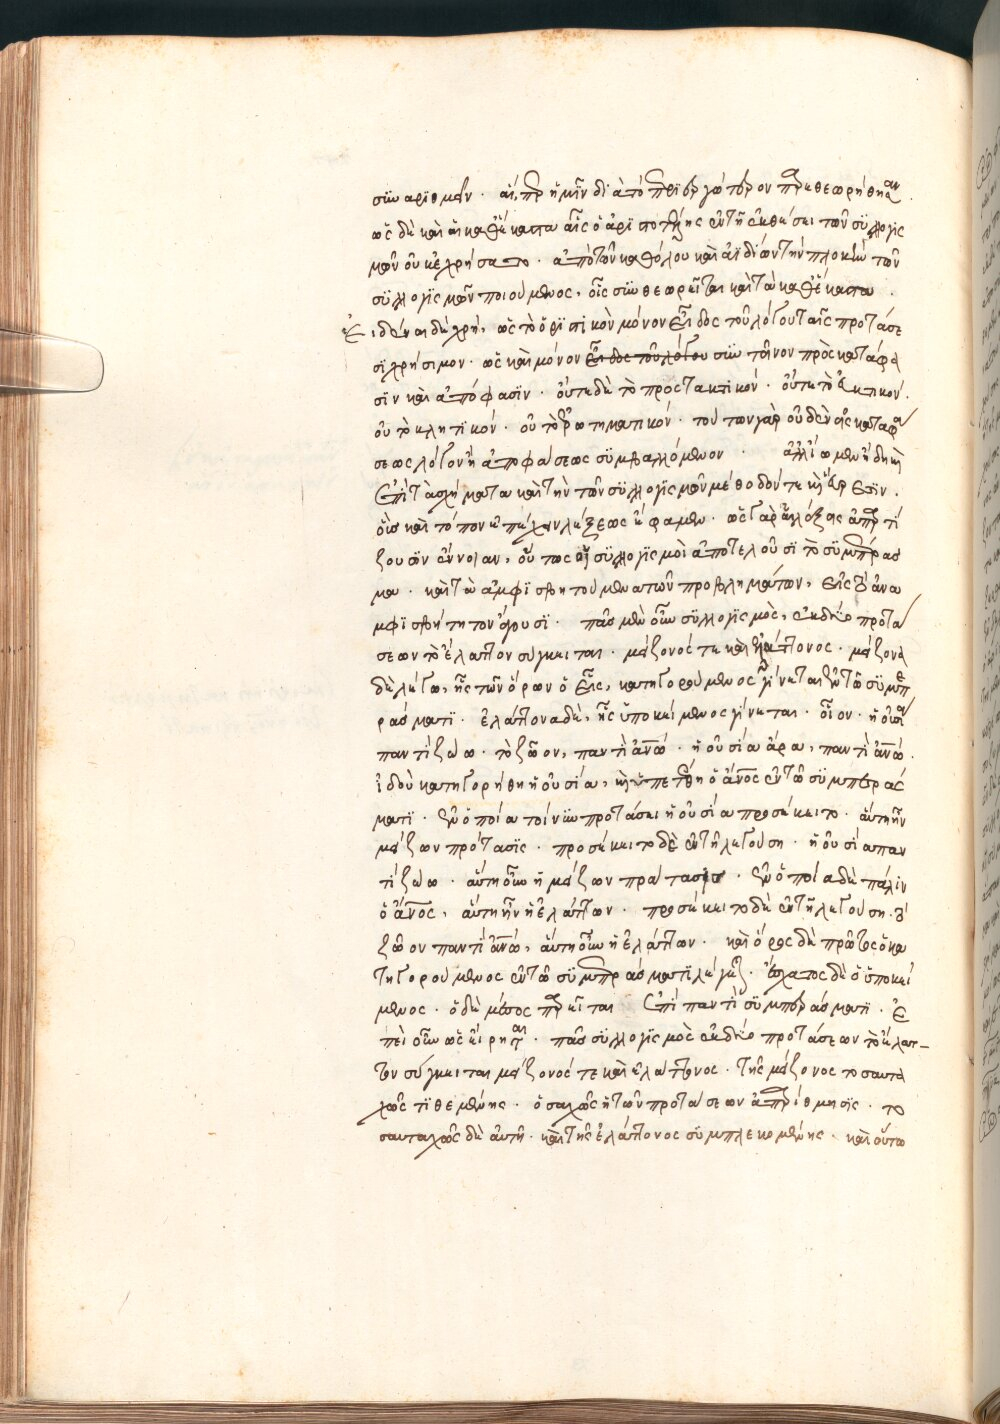 συναριθμεῖν. αἵπερ ἡμῖν διὰ τὸ περιεργότερον παρεθεωρήθησαν.
ὡς δὲ καὶ αἱ καθέκαστα αἷς ὁ ἀριστοτέλης ἐν τῇ ἐκθέσει τῶν συλλογισ
μῶν οὐ κέχρηται. ἀπὸ τῶν καθόλου καὶ ἀϊδίων τὴν πλοκὴν τῶν
συλλογισμῶν ποιούμενος, οἷς συνθεωρεῖται καὶ τὰ καθέκαστα.
Ἐιδέναι δὲ χρή, ὡς τὸ ὁριστικὸν μόνον εἶδος τοῦ λόγου ταῖς προτάσε
σι χρήσιμον. ὡς καὶ μόνον εἶδος τοῦ λόγου συντεῖνον πρὸς κατάφα
σιν καὶ ἀπόφασιν. οὔτε δὲ τὸ προστακτικόν. οὔτε τὸ εὐκτικόν.
οὐ τὸ κλητικόν. οὐ τὸ ἐρωτηματικόν. τούτων γὰρ οὐδὲν εἰς καταφά
σεως λόγον ἢ ἀποφάσεως συμβαλλόμενον. ἀλλ' ἴωμεν ἤδη καὶ
ἐπὶ τὰ σχήματα καὶ τὴν τῶν συλλογισμῶν μέθοδόν τε καὶ εὕρεσιν.
οἷς καὶ τόπον ἐπέχειν λέξεως ἔφαμεν. ὡς γὰρ αἱ λέξεις ἀπαρτί
ζουσιν ἔννοιαν, οὕτως οἱ συλλογισμοὶ ἀποτελοῦσι τὸ συμπέρασ
μα. καὶ τὰ ἀμφισβητούμενα τῶν προβλημάτων, εἰς τὸ ἀνα
μφισβήτητον ἄγουσι. πᾶς μὲν οὖν συλλογισμὸς, ἐκ δύο προτά
σεων τὸ ἔλαττον σύγκειται. μείζονός τε καὶ ἐλάττονος. μείζονα
δὲ λέγω, ἧς τῶν ὅρων ὁ εἷς, κατηγορούμενος γίνεται ἐν τῷ συμπε
ράσματι. ἐλάττονα δὲ, ἧς ὑποκείμενος γίνεται. οἷον. ἡ οὐσία
παντὶ ζώω. τὸ ζῶον, παντὶ ἀνῳ. ἡ οὐσία ἄρα, παντὶ ἀνῳ.
ἰδοὺ κατηγορήθη ἡ οὐσία, καὶ ὑπετέθη ὁ ἄνος ἐν τῷ συμπερασ
ματι. ἐν ὁποία τοίνυν προτάσει ἡ οὐσία προσέκειτο. αὕτη ἦν
μείζων πρότασις. προσέκειτο δὲ ἐν τῇ λεγούση. ἡ οὐσία παν
τὶ ζώω. αὕτη οὖν ἡ μείζων πρότασις. ἐν ὁποία δὲ πάλιν
ὁ ἄνος, αὕτη ἦν ἡ ἐλάττων. προσέκειτο δὲ ἐν τῇ λεγούση. τὸ
ζῶον παντὶ ἀνῳ, αὕτη οὖν ἡ ἐλάττων. καὶ ὅρος δὲ πρῶτος ὁ κα
τηγορούμενος ἐν τῷ συμπεράσματι λέγεται. ἔσχατος δὲ ὁ ὑποκεί
μενος. ὁ δὲ μέσος παρεῖται ἐπὶ παντὶ συμπεράσματι. Ἐ
πεὶ οὖν ὡς εἴρηται. πᾶς συλλογισμὸς ἐκ δύο προτάσεων τὸ ἔλατ-
τον σύγκειται μείζονός τε καὶ ἐλάττονος. τῆς μείζονος τοσαυτα
χῶς τιθεμένης. ὁσαχῶς ἡ τῶν προτάσεων ἀπαρίθμησις. το
σαυταχῶς δὲ αὐτῇ. καὶ τῆς ἐλάττονος συμπλεκομένης. καὶ οὕτω